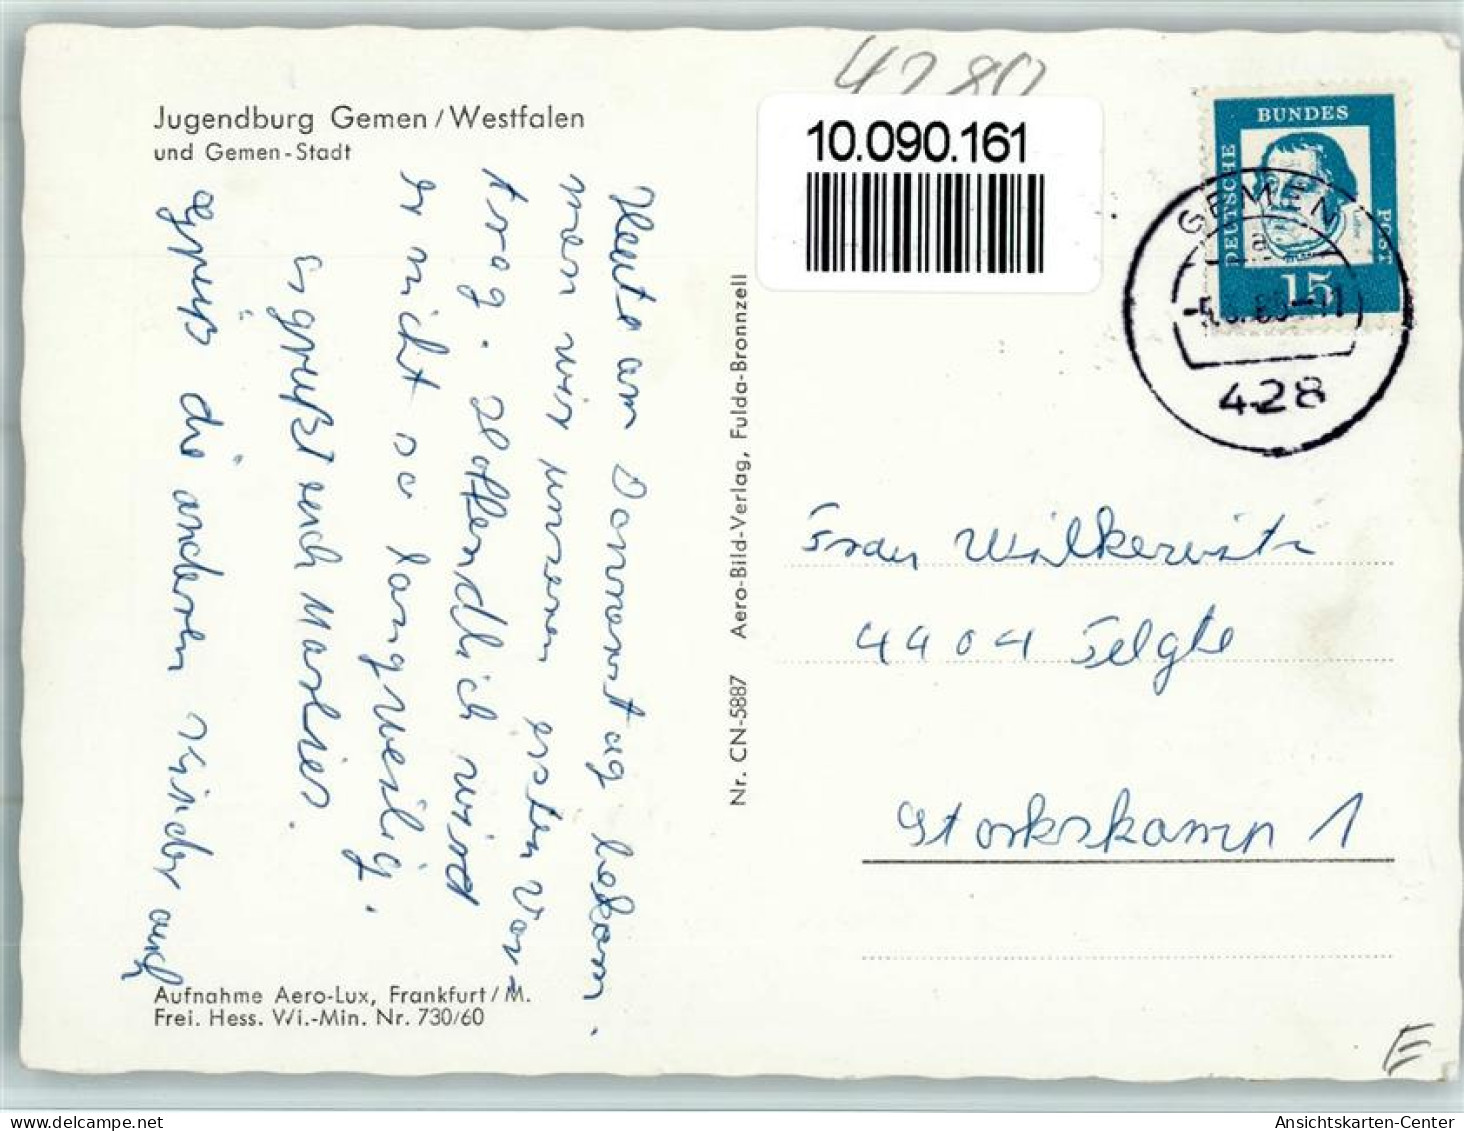 4280
Jugendburg Gemen/Westfalen
und Gemen-Stadt
10.090.161
DEUTSCHE
BUNDES
POST
15
GEMEN
a
428
Heute am Donnerstag bekom.
men wir unseren ersten Vor-
trag. Hoffendlich wird
er nicht so langweilig.
Es grüßt euch Marlies.
Grüß die anderen Kinder auch
Nr. CN-5887 Aero-Bild-Verlag, Fulda-Bronnzell
Frau
4404 Telgte
Storkskamp 1
Aufnahme Aero-Lux, Frankfurt/M.
Frei. Hess. Wi.-Min. Nr. 730/60
E
Ansichtskarten-Center